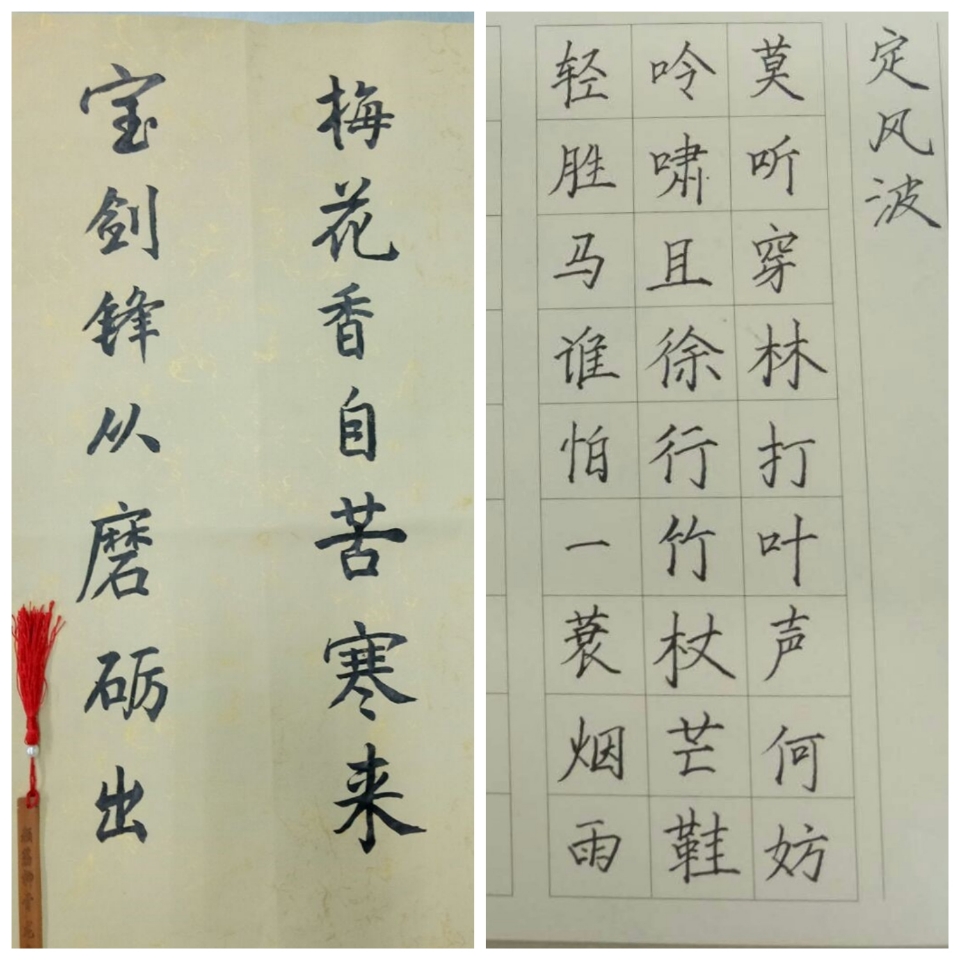 梅花香自苦寒来
宝剑锋从磨砺出
定风波
莫听穿林打叶声何妨
呤啸且徐行竹杖芒鞋
轻胜马谁怕一蓑烟雨